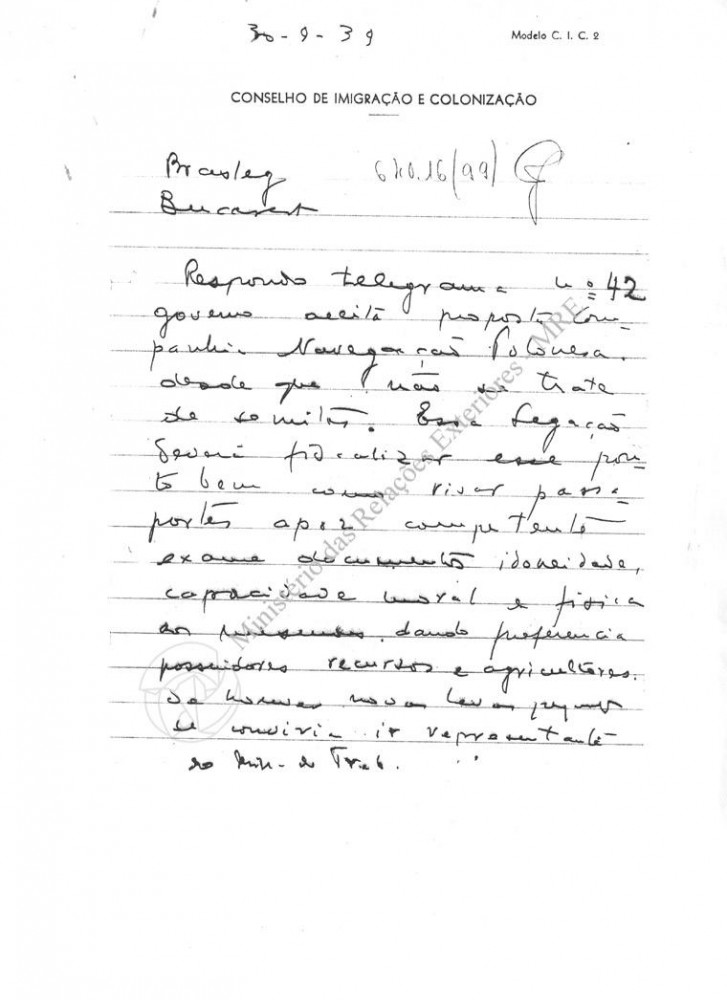 30-9-39
Modelo C. I. C. 2
CONSELHO DE IMIGRAÇÃO E COLONIZAÇÃO
Brasleg 640.16(99)
Bucarest
Respondo telegrama nº 42
governo aceita proposta Com-
panhia Navegação Polonesa,
desde que não se trate
de semitas. Essa Legação
deverá fiscalizar esse pon-
to bem como visar passa-
portes após competente
exame documentos idoneidade,
capacidade moral e fisica
dos dando preferencia
possuidores recursos e agricultores.
Se houver novas levas
se conviria ir representante
do Min. do Trab.
Ministério das Relações Exteriores - MRE